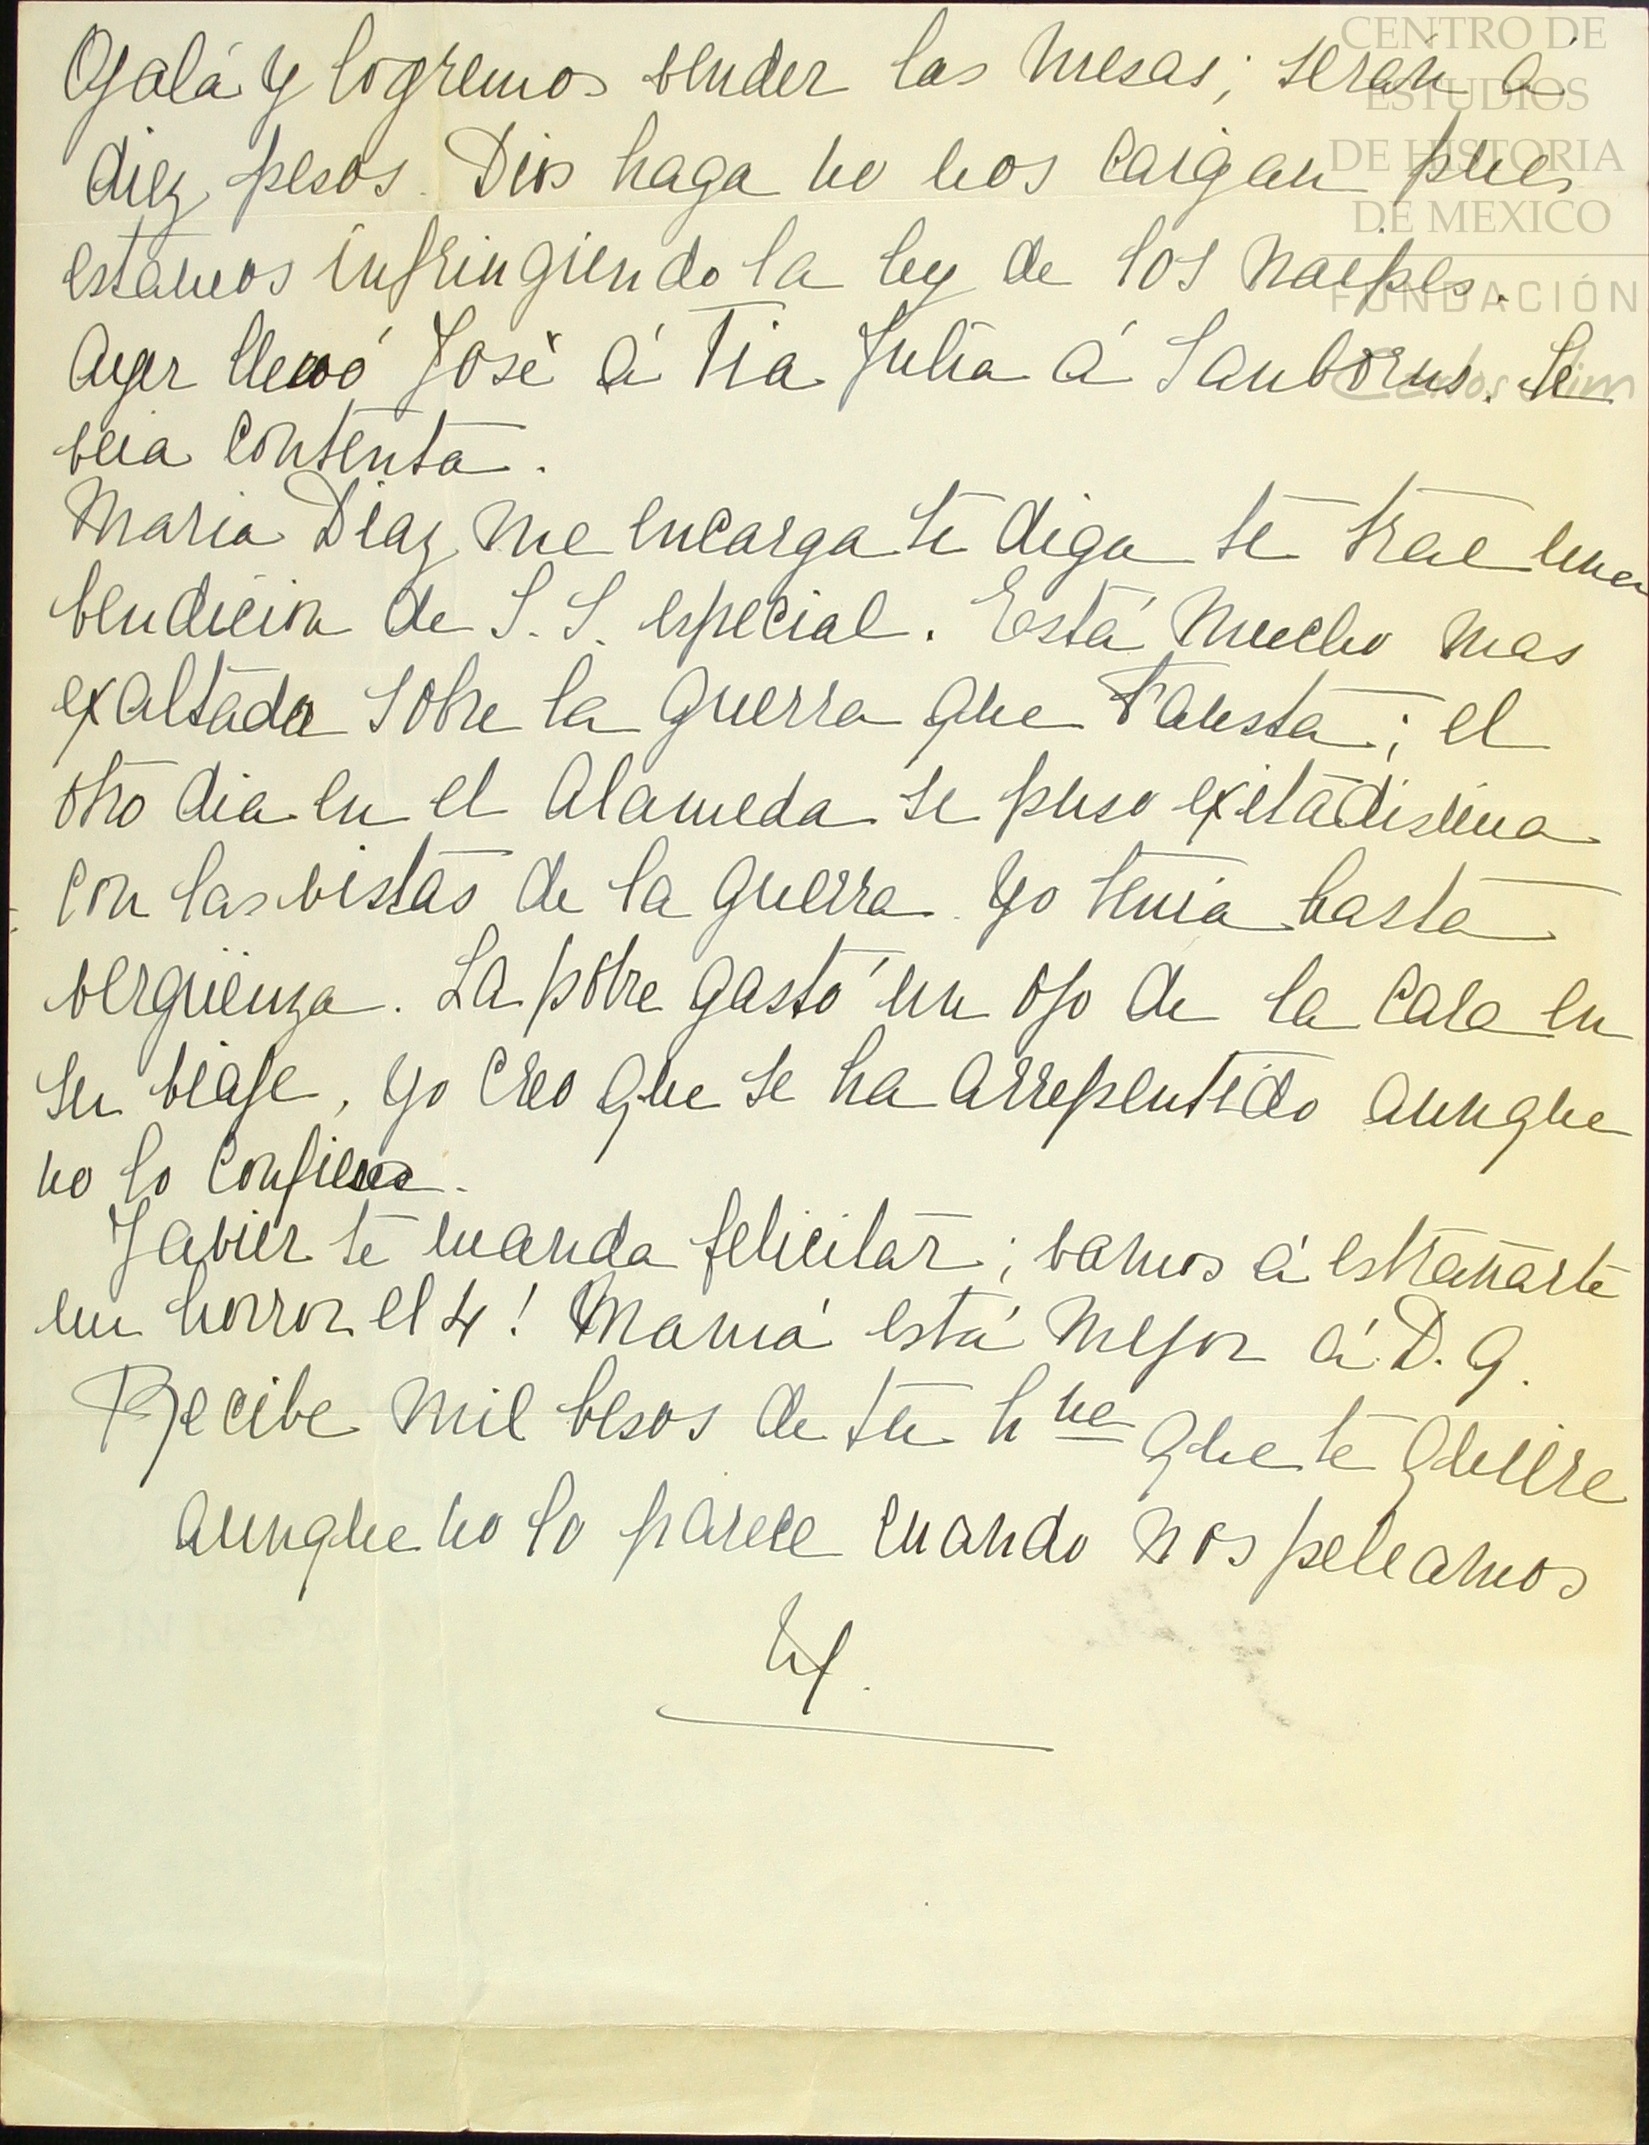 CENTRO DE
ESTUDIOS
DE HISTORIA
DE MEXICO
FUNDACIÓN
Carlos Slim
Ojalá y logremos vender las mesas; serán á
diez pesos. Dios haga no nos caigan pues
estamos infringiendo la ley de los naipes.
Ayer llevó José á Tia Julia á Sanborns. Se
veia contenta.
Maria Diaz me encarga te diga te trae una
bendicion de S. S. especial. Está mucho mas
exaltada sobre la guerra que Fausta; el
otro dia en el Alameda se puso exitadisima
con las vistas de la guerra. Yo tenia hasta
vergüenza. La pobre gastó un ojo de la cara en
su viaje, yo creo que se ha arrepentido aunque
no lo confiesa.
Javier te manda felicitar; vamos á estrañarte
un horror el 4! Mamá está mejor á D. g.
Recibe mil besos de tu hna que te quiere
aunque no lo parece cuando nos peleamos